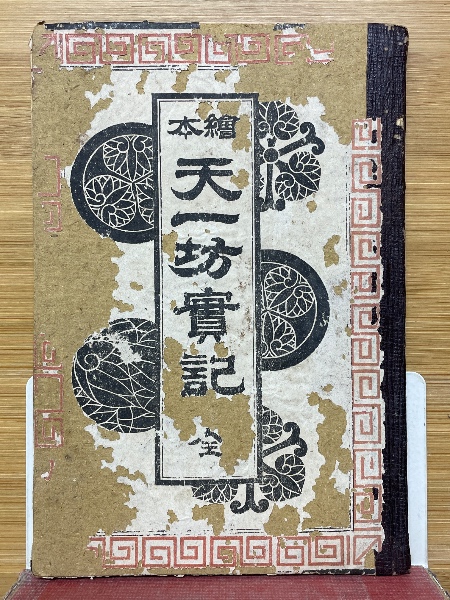 繪本
天一坊實記
全